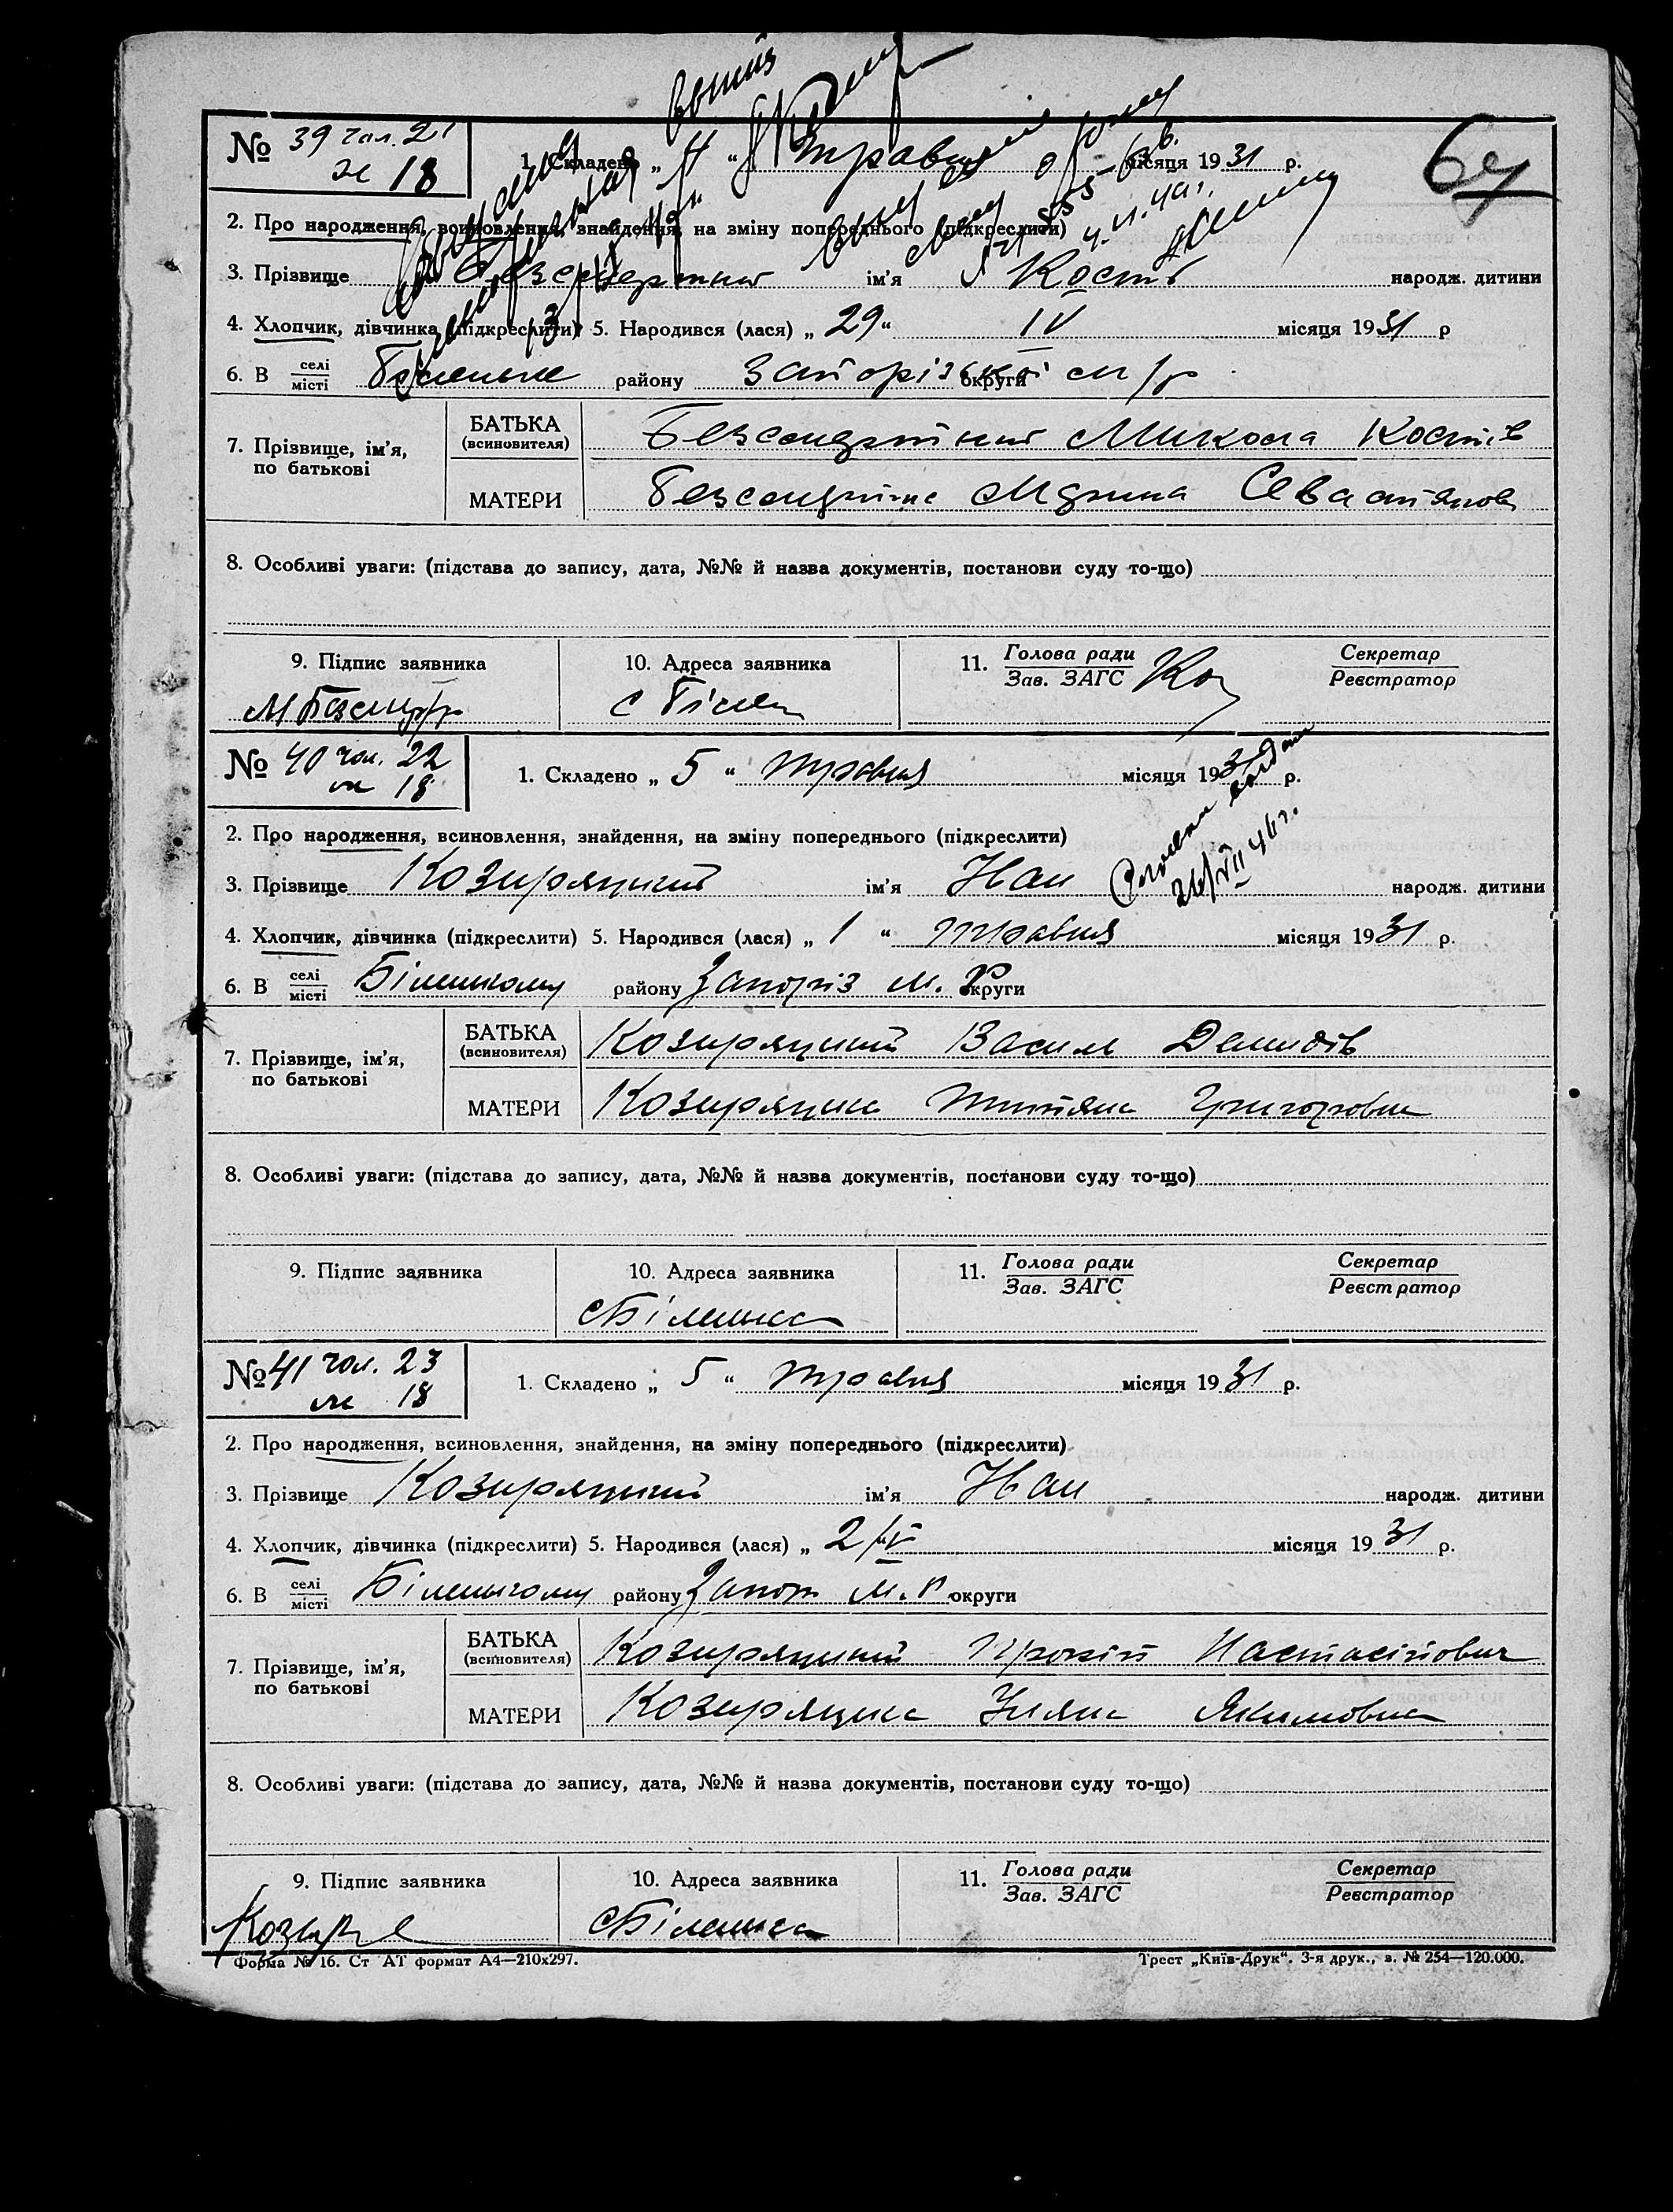 № 39 чол. 21
ж 18
1. Складено „ 4 “ травня місяця 1931 р.
2. Про народження, всиновлення, знайдення, на зміну попереднього (підкреслити)
3. Прізвище Безсмертний ім'я Кость народж. дитини
4. Хлопчик, дівчинка (підкреслити) 5. Народився (лася) „ 29 “ IV місяця 1931 р
6. В селі місті Біленьке району Запорізької округи м/р.
7. Прізвище, ім'я, по батькові
БАТЬКА (всиновителя) Безсмертний Микола Костів
МАТЕРИ Марина Севастянов
8. Особливі уваги: (підстава до запису, дата, №№ й назва документів, постанови суду то-що)
9. Підпис заявника 10. Адреса заявника 11. Голова ради Зав. ЗАГС Секретар Реєстратор
с Білен
№ 40 чол. 22
ж 18
1. Складено „ 5 “ травня місяця 1931 р.
2. Про народження, всиновлення, знайдення, на зміну попереднього (підкреслити)
3. Прізвище Козиряцький ім'я Іван народж. дитини
26/VII 46 г.
4. Хлопчик, дівчинка (підкреслити) 5. Народився (лася) „ 1 “ травня місяця 1931 р.
6. В селі місті Біленькому району Запоріз м. Р округи
7. Прізвище, ім'я, по батькові
БАТЬКА (всиновителя) Козиряцький Василь Демидів
МАТЕРИ Козиряцька Титяна Григоровна
8. Особливі уваги: (підстава до запису, дата, №№ й назва документів, постанови суду то-що)
9. Підпис заявника 10. Адреса заявника 11. Голова ради Зав. ЗАГС Секретар Реєстратор
с Біленька
№ 41 чол. 23
ж 18
1. Складено „ 5 “ травня місяця 1931 р.
2. Про народження, всиновлення, знайдення, на зміну попереднього (підкреслити)
3. Прізвище Козиряцький ім'я Іван народж. дитини
4. Хлопчик, дівчинка (підкреслити) 5. Народився (лася) „ 2/V місяця 1931 р.
6. В селі місті Біленькому району Запор м. Р округи
7. Прізвище, ім'я, по батькові
БАТЬКА (всиновителя) Козиряцький Прокіп
МАТЕРИ Козиряцька Уляна Якимовна
8. Особливі уваги: (підстава до запису, дата, №№ й назва документів, постанови суду то-що)
9. Підпис заявника 10. Адреса заявника 11. Голова ради Зав. ЗАГС Секретар Реєстратор
с Біленька
Форма № 16. Ст АТ формат А4—210х297. Трест „Київ-Друк“. 3-я друк., з. № 254—120.000.